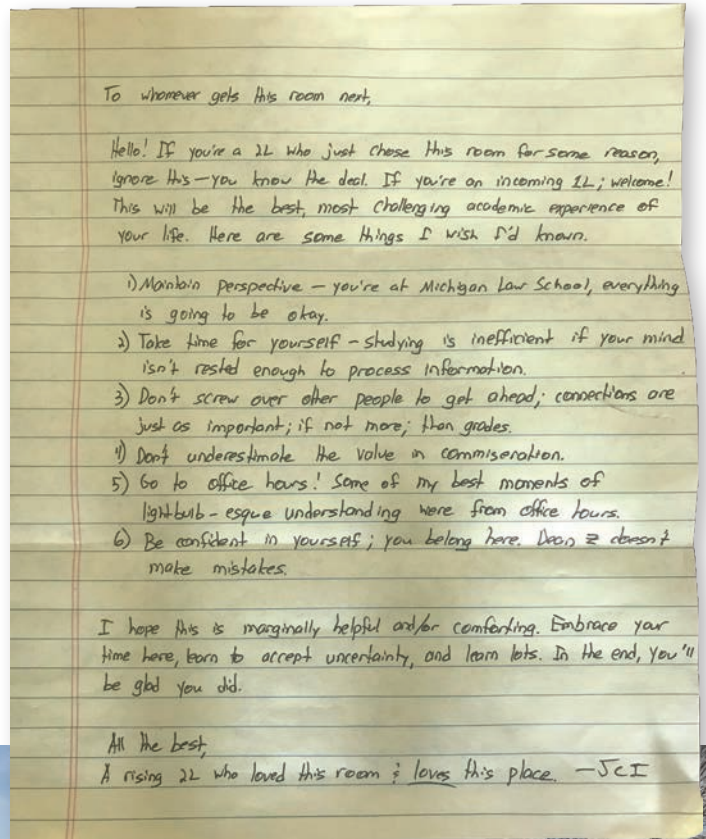 To whomever gets this room next,
Hello! If you're a 2L who just chose this room for some reason,
ignore this – you know the deal. If you're an incoming 1L; welcome!
This will be the best, most challenging academic experience of
your life. Here are some things I wish I'd known.
1) Maintain perspective – you're at Michigan Law School, everything
is going to be okay.
2) Take time for yourself – studying is inefficient if your mind
isn't rested enough to process information.
3) Don't screw over other people to get ahead; connections are
just as important; if not more; than grades.
4) Don't underestimate the value in commiseration.
5) Go to office hours! Some of my best moments of
lightbulb-esque understanding were from office hours.
6) Be confident in yourself; you belong here. Dean Z doesn't
make mistakes.
I hope this is marginally helpful and/or comforting. Embrace your
time here, learn to accept uncertainty, and learn lots. In the end, you'll
be glad you did.
All the best,
A rising 2L who loved this room & loves this place. – JCI